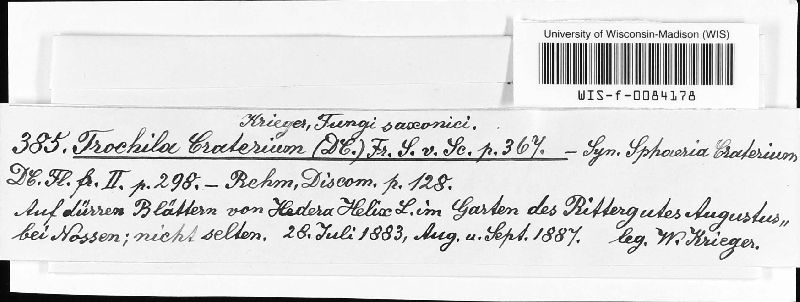 University of Wisconsin-Madison (WIS)
WIS-f-0084178
Krieger, Fungi saxonici.
385. Trochila Craterium (DC.) Fr. S. v. Sc. p. 367. – Syn. Sphaeria Craterium
DC. Fl. fr. II. p. 298. – Rehm, Discom. p. 128.
Auf dürren Blättern von Hedera Helix L. im Garten des Rittergutes Augustus„
bei Nossen; nicht selten. 28. Juli 1883, Aug. u. Sept. 1887. leg. W. Krieger.